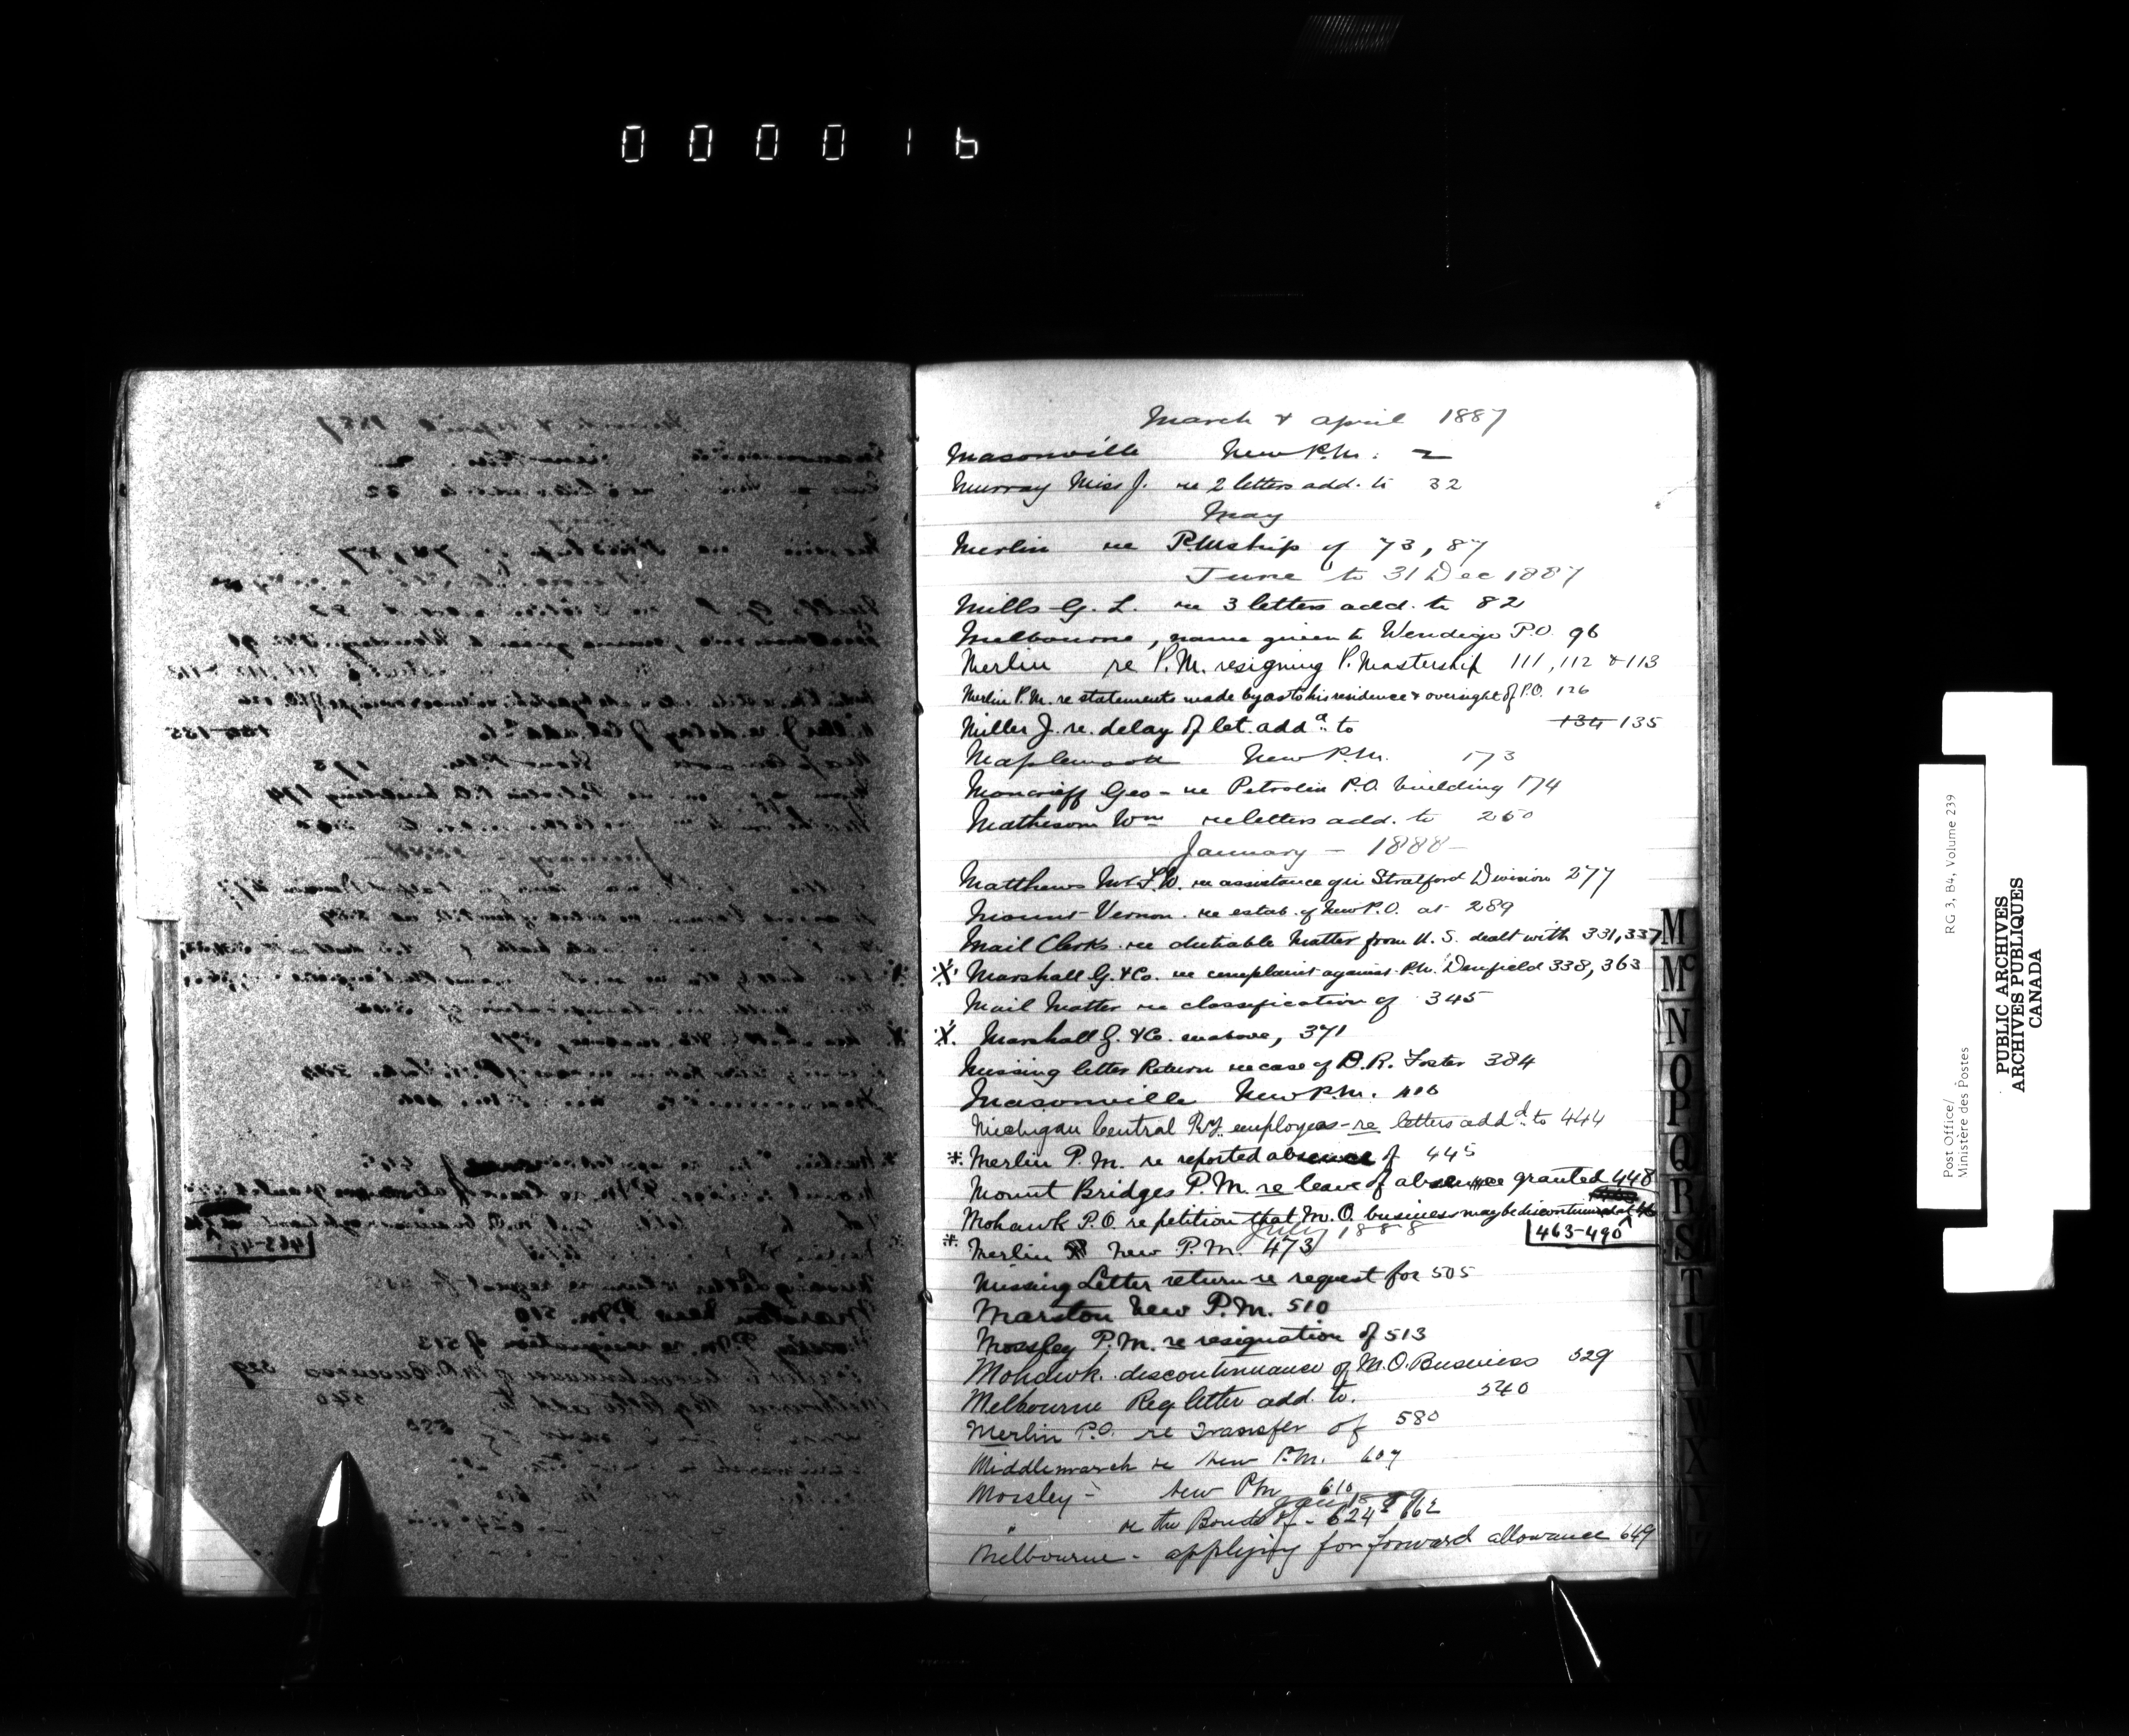 000016
March & April 1887
Masonville New P.M. 2
Murray Miss J. re 2 letters add. to 32
May
Merlin re P.Mship of 73, 87
June to 31 Dec 1887
Mills G. L. re 3 letters add. to 82
Melbourne, name given to Wendigo P.O. 96
Merlin re P.M. resigning P. Mastership 111, 112 & 113
Merlin P.M. re statements made by as to his residence & oversight of P.O. 126
Miller J. re. delay of let. addd. to 134 135
Maplewood New P.M. 173
Moncrieff Geo - re Petrolia P.O. building 174
Matheson Wm re letters add. to 260
January - 1888 -
Matthews Mr F.W. re assistance given Stratford Division 277
Mount Vernon. re estab. of New P.O. at 289
Mail Clerks. re dutiable Matter from U.S. dealt with 331, 337
X Marshall G. & Co. re complaint against P.M. Denfield 338, 363
Mail Matter re classification of 345
X. Marshall G. & Co. as above, 371
Missing letter Return re case of D. R. Foster 384
Masonville New P.M. 406
Michigan Central Ry. employees - re letters addd. to 444
* Merlin P.M. re reported absence of 445
Mount Bridges P.M. re leave of absence granted 448
Mohawk P.O. re petition that M.O. business may be discontinued at 46
463-490
July 1888
* Merlin New P.M. 473
Missing Letter return re request for 505
Marston New P.M. 510
Mossley P.M. re resignation of 513
Mohawk. discontinuance of M.O. Business 529
Melbourne Reg letter add. to. 540
Merlin P.O. re Transfer of 580
Middlemarch re New P.M. 607
Mossley - New PM 610
Jany 1889
" re the Bonds of - 624 & 662
Melbourne - applying for forward allowance 649
M
Mc
N
O
P
Q
R
S
T
U
V
W
X
Y
Z
Post Office/
Ministère des Postes
RG 3, B4, Volume 239
PUBLIC ARCHIVES
ARCHIVES PUBLIQUES
CANADA